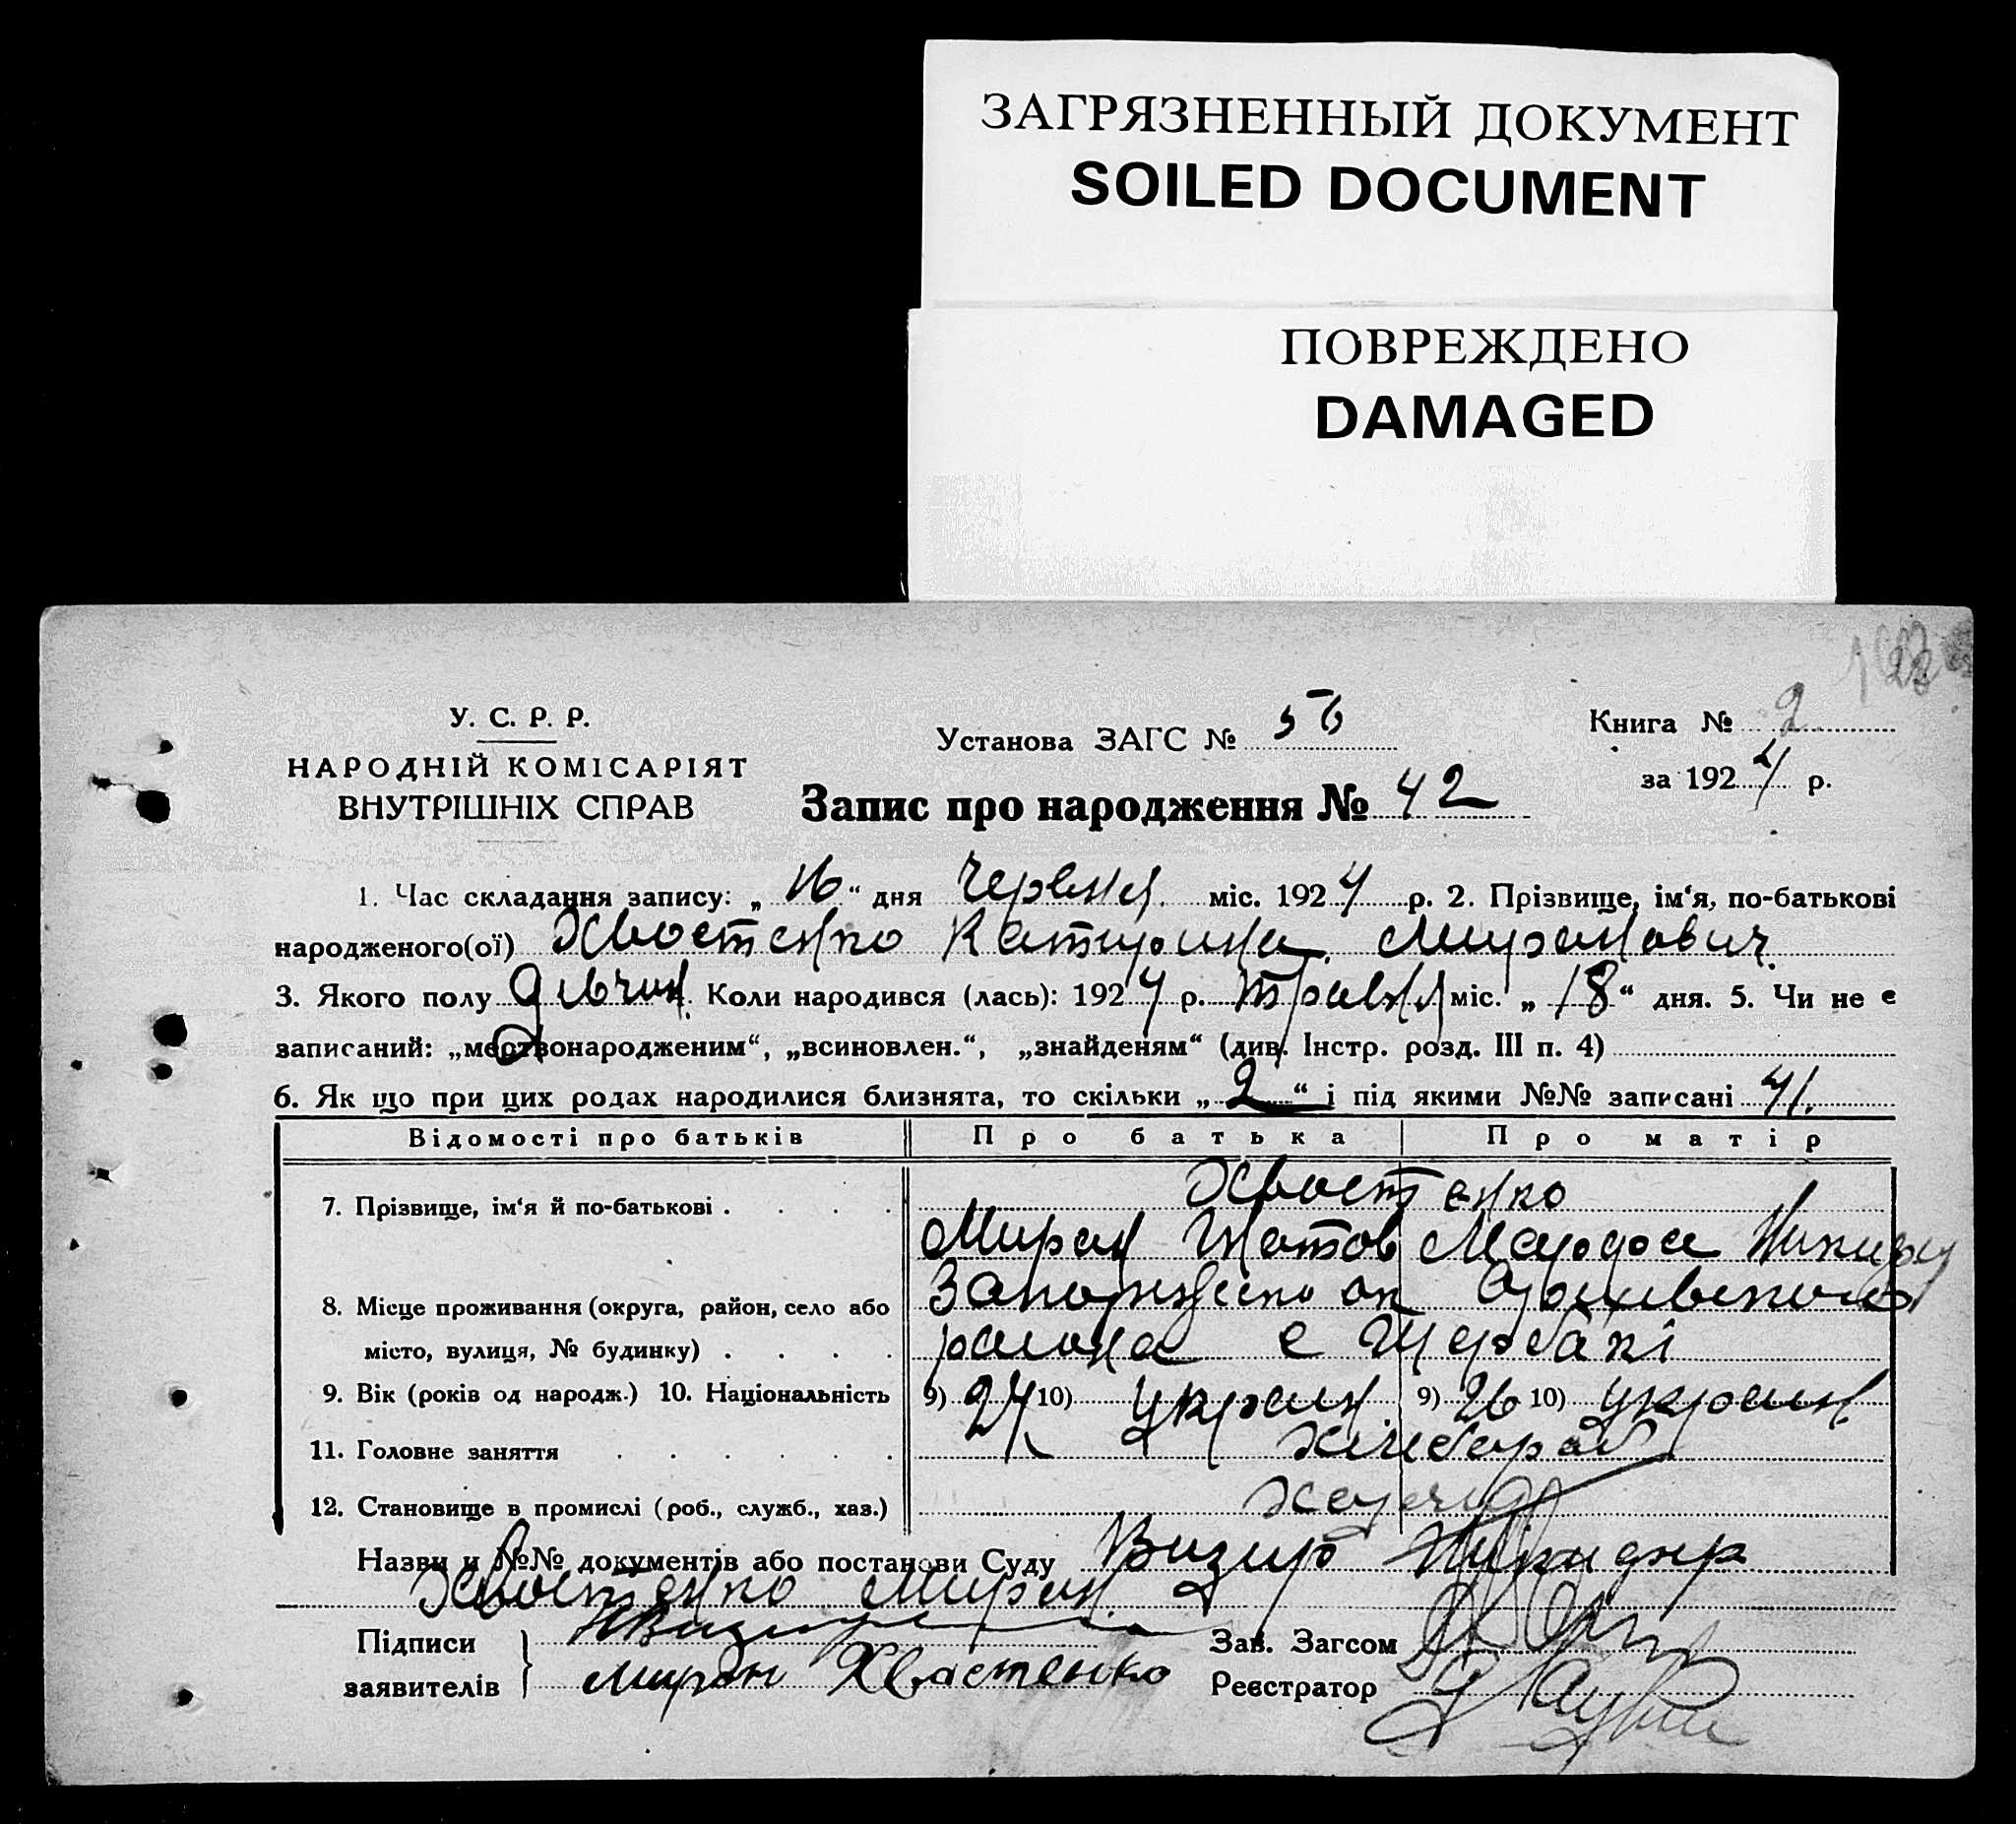 ЗАГРЯЗНЕННЫЙ ДОКУМЕНТ
SOILED DOCUMENT
ПОВРЕЖДЕНО
DAMAGED
У. С. Р. Р.
НАРОДНІЙ КОМІСАРІЯТ
ВНУТРІШНІХ СПРАВ
Установа ЗАГС №
Книга № 2
за 1924 р.
Запис про народження № 42
1. Час складання запису: „16“ дня червня міс. 1924 р. 2. Прізвище, ім‘я, по-батькові
народженого(ої) Хвостенко Катирина Миронович
3. Якого полу дівчин. Коли народився (лась): 1924 р. травня міс. „18“ дня. 5. Чи не є
записаний: „мертвонародженим“, „всиновлен.“, „знайденям“ (див. Інстр. розд. III п. 4)
6. Як що при цих родах народилися близнята, то скільки „2“ і під якими №№ записані 41.
Відомості про батьків Про батька Про матір
7. Прізвище, ім‘я й по-батькові . . . . Хвостенко
Мирон Гнатов Мардоа
8. Місце проживання (округа, район, село або Запоріжсько ок
місто, вулиця, № будинку) . . . . района с Щербакі
9. Вік (років од народж.) 10. Національність 9) 24 10) украин. 9) 26 10) украин.
11. Головне заняття . . . . . . хлібороб
12. Становище в промислі (роб., служб., хаз.)
Назви и №№ документів або постанови Суду Визир
Хвостенко Мирон.
Підписи
заявителів Мирон Хвастенко
Зав. Загсом
Реєстратор